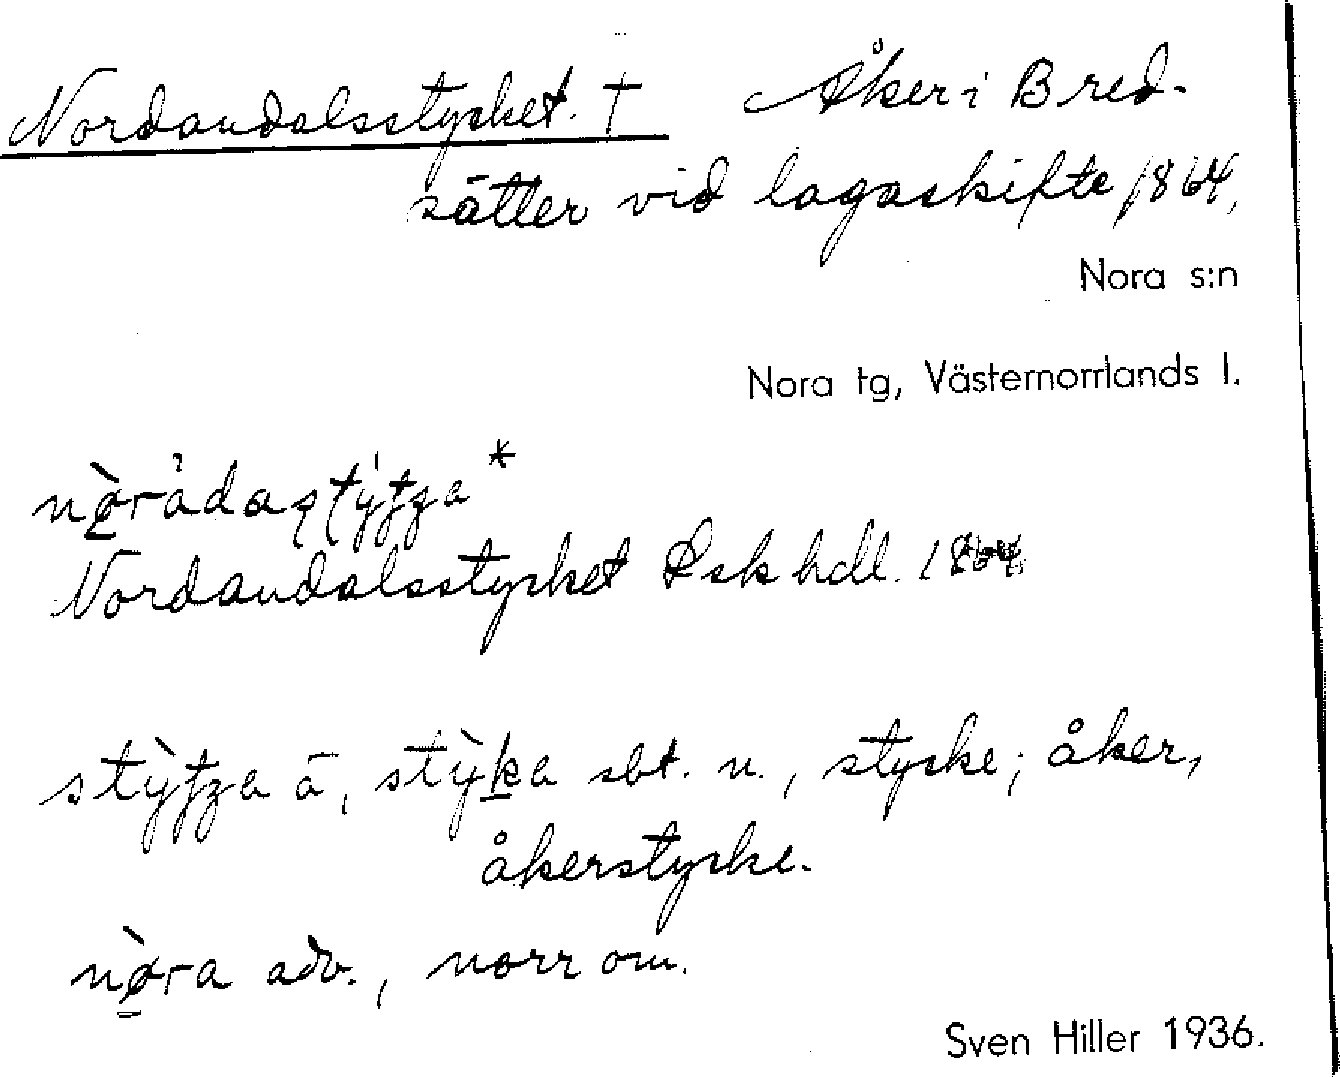 Nordandalsstycket. † Åker i Bred-
sätter vid lagaskifte 1864,
Nora s:n
Nora tg, Västernorrlands l.
Nordandalsstycket Lsk hdl. 1864
sbt. n., stycke; åker,
åkerstycke.
nòra adv., norr om.
Sven Hiller 1936.